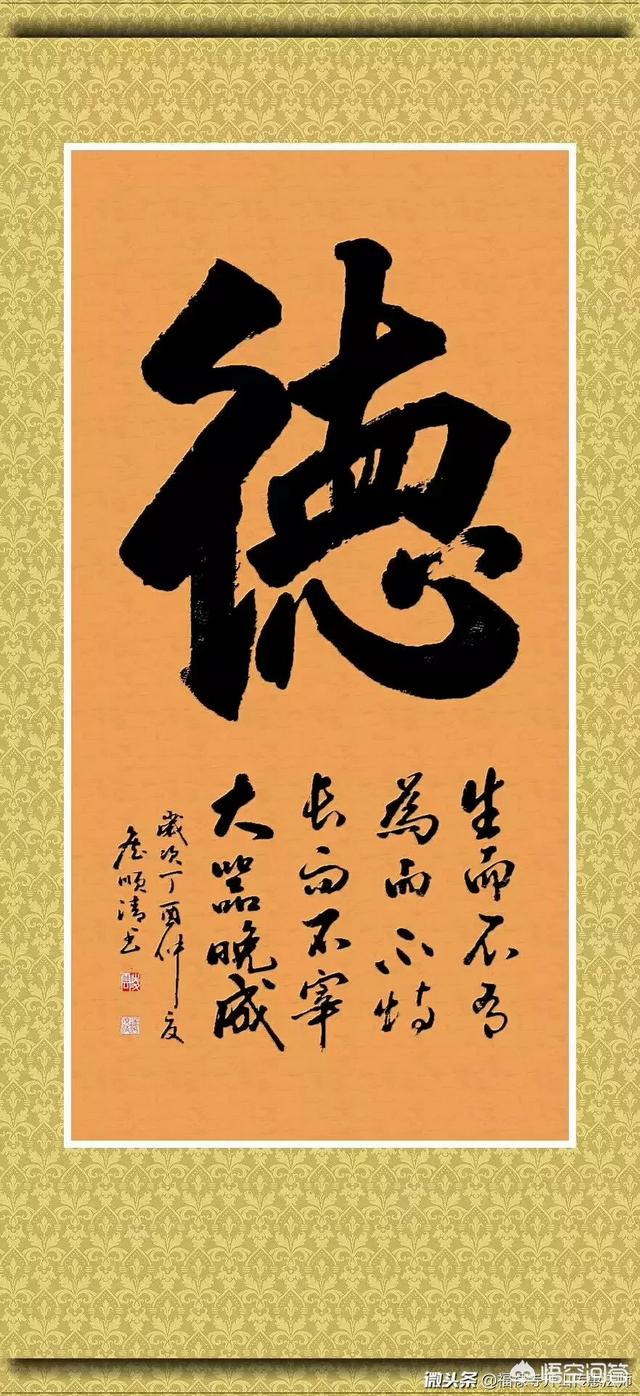 德
生而不有
為而不恃
長而不宰
大器晚成
歲次丁酉仲夏
詹順清书
微头条 @福禄寺
悟空问答